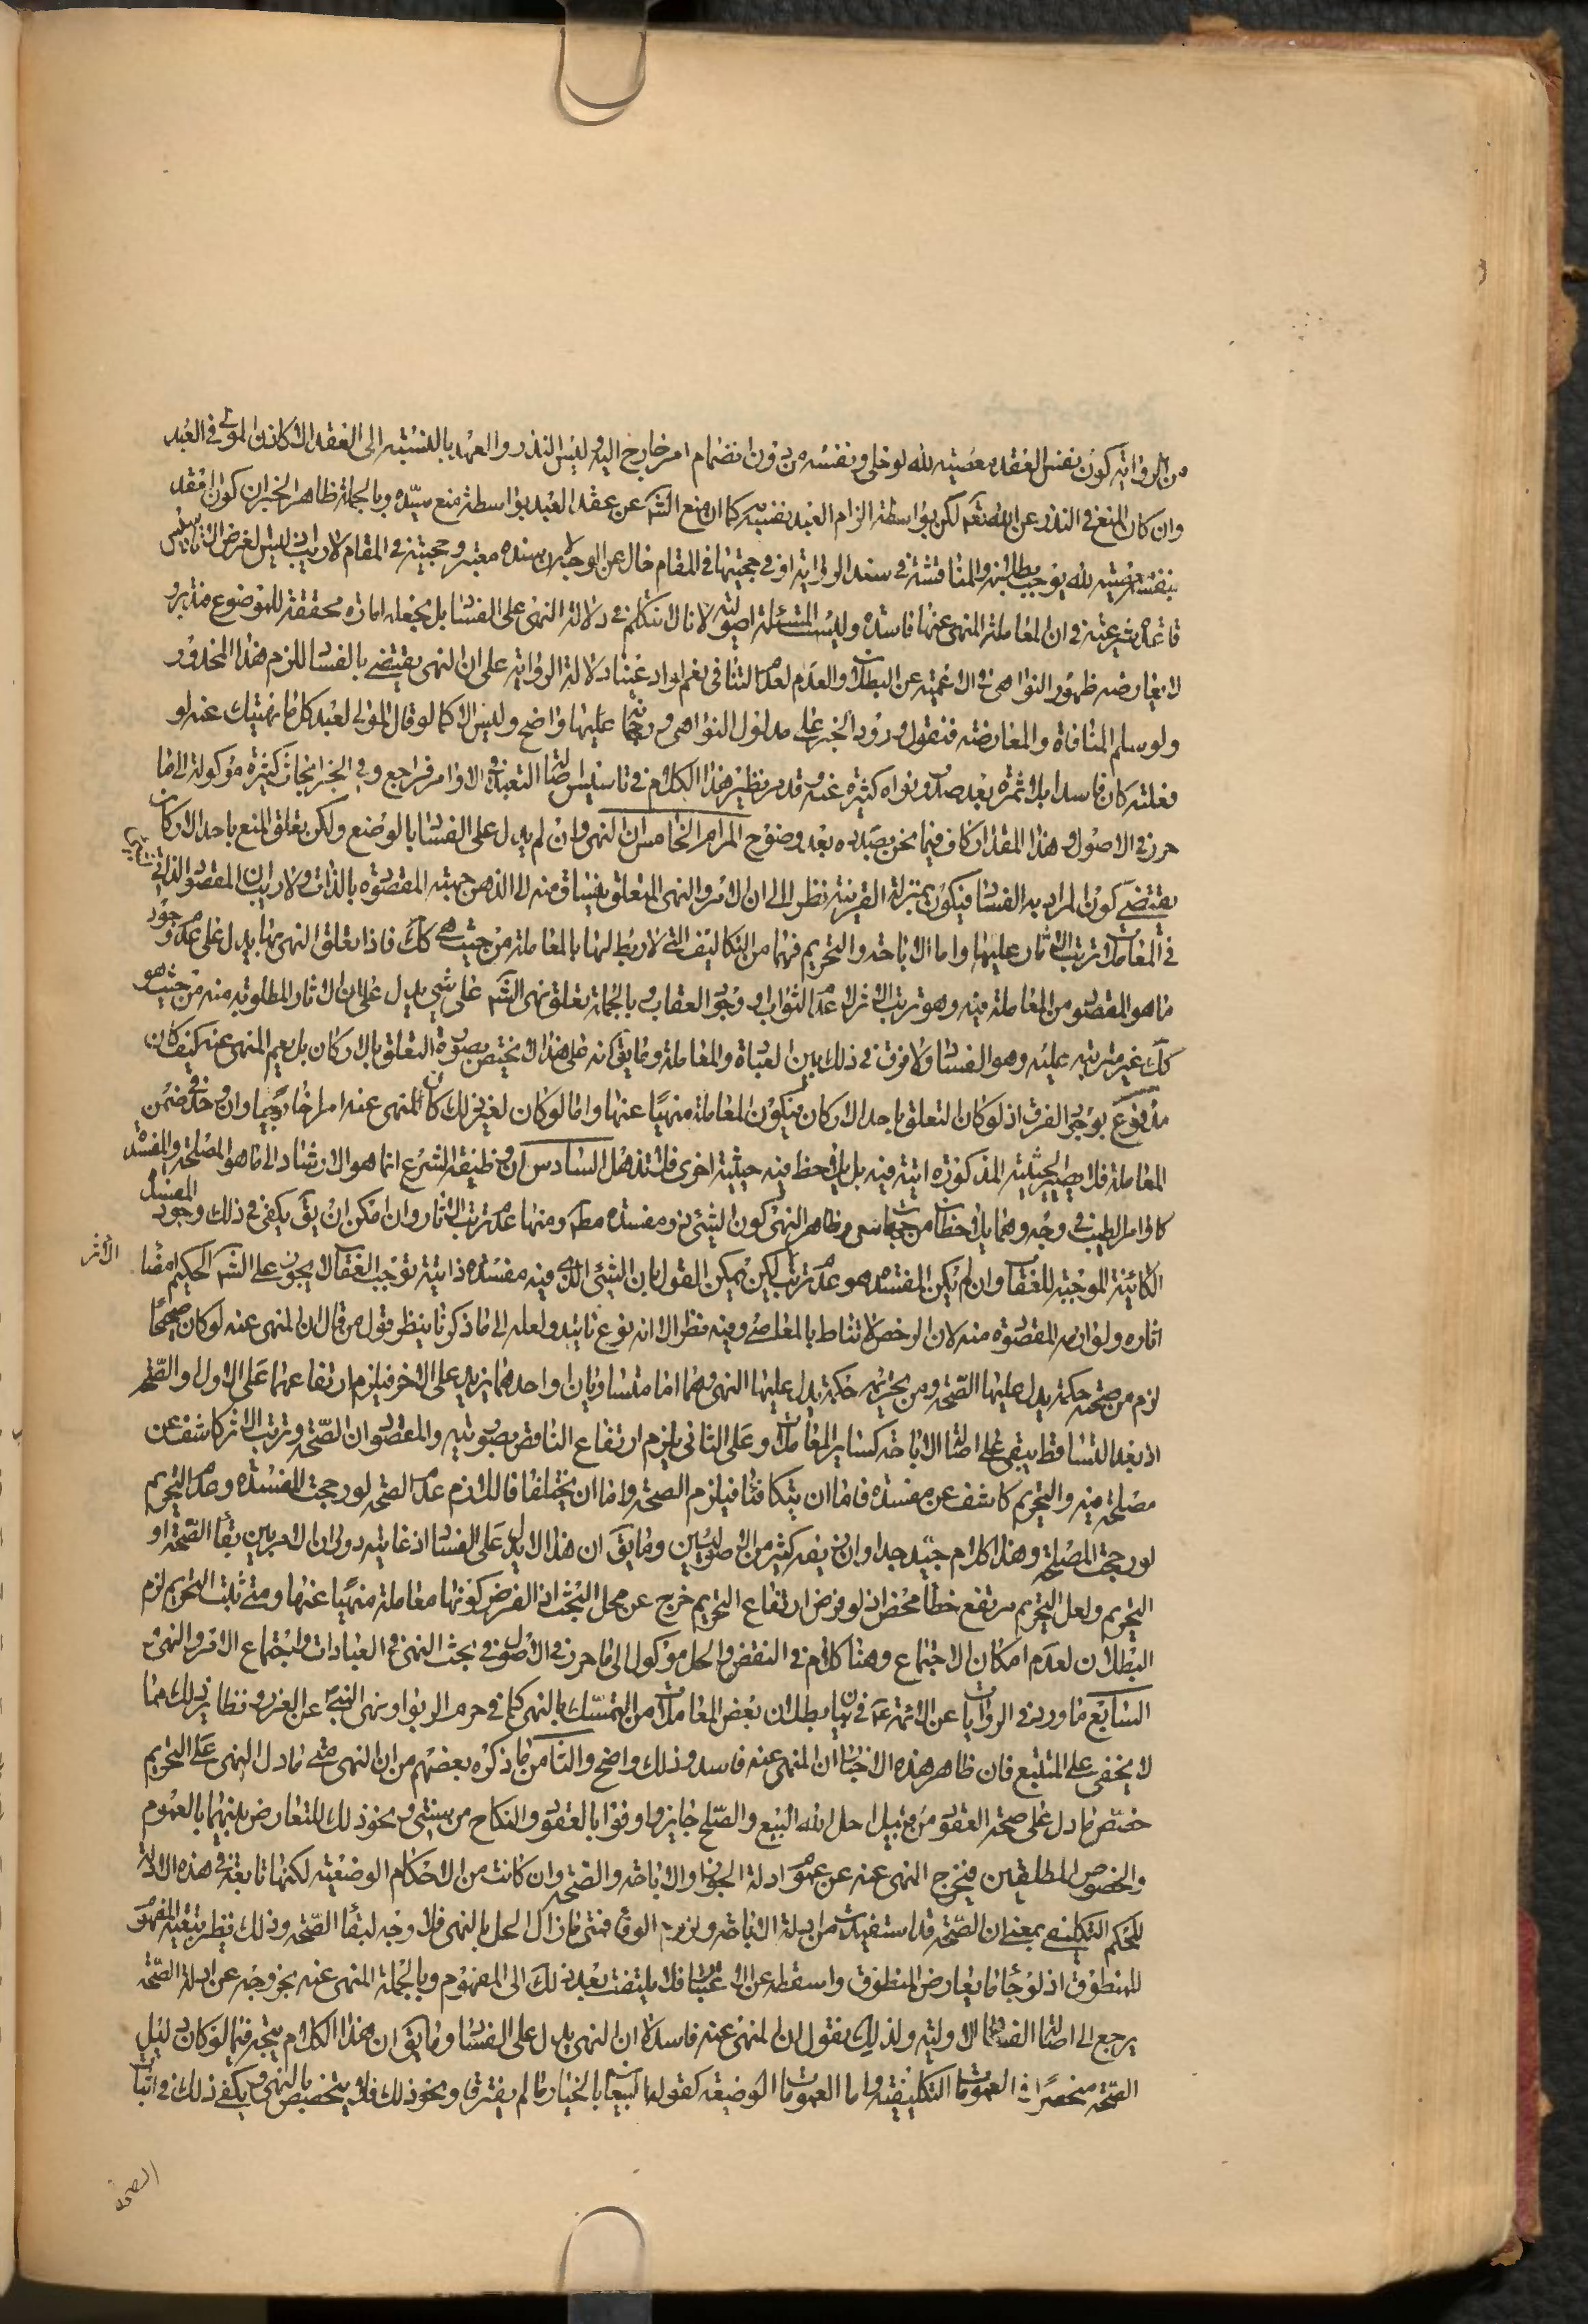 من الرواية كون نفس العقد معصية لله لو خلي ونفسه من دون انضمام امر خارج اليه وليس النذر والعهد بالنسبة الى العقد الا كاذن المولى في العبد
وان كان المنع في النذر عن الله تعم لكن بواسطة الزام العبد بنفسه كما ان منع الشم عن عقد العبد بواسطة منع سيّده وبالجملة ظاهر الخبر ان كون العقد
بنفسه معصية لله يوجب بطلانه والمناقشة في سند الرواية او في حجيتها في المقام خال عن الوجه لان سنده معتبر وحجيته في المقام لا ريب فيه ليس لغرض الا تاسيس
قاعدة شرعية في ان المعاملة المنهى عنها فاسدة وليست المسئلة اصولية لانا لا نتكلم في دلالة النهى على الفساد بل نجعله امارة محققة للموضوع فتدبر و
لا يعارضه ظهور النواهى في الاعمية عن البطلان والعدم لعدم التنافى نعم لو ادعينا دلالة الرواية على ان النهى يقتضي بالفساد للزم هذا المحذور
ولو سلم المنافاة والمعارضة فنقول ورود الخبر على مدلول النواهى ورجحانه عليها واضح وليس الا كما لو قال المولى لعبده كل ما نهيتك عنه لو
فعلته كان فاسدا بلا ثمرة بعد صدور نواه كثيرة عنه وقد مر نظير هذا الكلام في تاسيس اصالة التعبد في الاوامر فراجع وفي الخبر ابحاث كثيرة موكولة الى ما
حرر في الاصول وهذا المقدار كاف فيما نحن بصدده بعد وضوح المرام الخامس ان النهى وان لم يدل على الفساد بالوضع ولكن تعلق المنع باحد الاركان
يقتضي كون المراد به الفساد فيكون بمنزلة القرينة نظرا الى ان الامر والنهى المتعلق بشئ ينساق منه الى الذهن جهته المقصودة بالذات ولا ريب ان المقصود الذاتي
في المعاملات ترتب الاثار عليها واما الاباحة والتحريم فهما من التكاليف التى لا ربط لهما بالمعاملة من حيث هى كك فاذا تعلق النهى بها يدل على عدم وجود
ما هو المقصود من المعاملة فيه وهو ترتب الاثر لا عدم الثواب او وجود العقاب وبالجملة تعلق نهى الشم على شئ يدل على ان الاثار المطلوبة منه من حيث هو
كك غير مترتبة عليه وهو الفساد ولا فرق في ذلك بين العبادة والمعاملة وما يق انه على هذا لا يختص بصورة التعلق بالاركان بل يعم المنهى عنه كيف كان
مدفوع بوجود الفرق اذ لو كان التعلق باحد الاركان فيكون المعاملة منهيا عنها واما لو كان لغير ذلك كان المنهى عنه امرا خارجيا وان وجد في ضمن
المعاملة فلا يصير الحيثية المذكورة اتية فيه بل يلاحظ فيه حيثية اخرى فلا تذهل السادس ان وظيفة الشرع انما هو الارشاد الى ما هو المصلحة والمفسدة
كاوامر الطبيب في وجه وهما يلاحظان من حيث ظاهر النهى كون الشئ ذو مفسدة مطم ومنها عدم ترتب الاثار وان امكن ان يق يكفى في ذلك وجود المفسدة
الكائنة الموجبة للعقاب وان لم يكن المفسدة هو عدم ترتب الاثر لكن يمكن القول بان الشئ الذى فيه مفسدة ذاتية توجب العقاب لا يجوز على الشم الحكيم امضاء
اثاره ولوازمه المقصودة منه لان الرخص لا تناط بالمعاصي وفيه نظر الا انه نوع تاييد ولعله الى ما ذكرنا ينظر قول من قال ان المنهى عنه لو كان صحيحا
لزم من صحته حكمة يدل عليها الصحة ومن تحريمه حكمة يدل عليها النهى وهما اما متساويان او احدهما يزيد على الاخر فيلزم ارتفاعهما على الاول والصحة
اذ بعد التساقط يبقى على اصالة الاباحة كسائر المعاملات وعلى الثانى يلزم ارتفاع الناقص بصبوبته والمقصود ان الصحة وترتب الاثر كاشف عن
مصلحة فيه والتحريم كاشف عن مفسدة فاما ان يتكافئا فيلزم الصحة واما ان يختلفا فاللازم عدم الصحة لو رجحت المفسدة وعدم التحريم
لو رجحت المصلحة وهذا كلام جيد جدا وان زيفه كثير من الاصوليين وما يق ان هذا لا يدل على الفساد اذ غايته دوران الامر بين بقاء الصحة او
التحريم ولعل التحريم مرتفع خطأ محض اذ لو فرض ارتفاع التحريم خرج عن محل البحث اذ الفرض كونها معاملة منهيا عنها ومتى ثبت التحريم لزم
البطلان لعدم امكان الاجتماع وهنا كلام في النقض والحل موكول الى ما حرر في الاصول في بحث النهى في العبادات واجتماع الامر والنهى
السابع ما ورد في الروايات عن الائمة عم في بيان بطلان بعض المعاملات من التمسك بالنهى كما في حرم الربوا ونهى النبى عن الغرر ونظائر ذلك مما
لا يخفى على المتتبع فان ظاهر هذه الاخبار ان المنهى عنه فاسد وذلك واضح والثامن ما ذكره بعضهم من ان النهى متى ما دل النهى على التحريم
خصّص ما دل على صحة العقود من قبيل احل الله البيع والصلح جايز واوفوا بالعقود والنكاح من سنتى ونحو ذلك للتعارض بينهما بالعموم
والخصوص المطلقين فيخرج المنهى عنه عن عموم ادلة الجواز والاباحة والصحة وان كانت من الاحكام الوضعية لكنها تابعة في هذه الادلة
للحكم التكليفى بمعنى ان الصحة قد استفيدت من ادلة الاباحة ولزوم الوفاء فمتى ما زال الحل بالنهى فلا وجه لبقاء الصحة وذلك نظير تبعية المفهوم
للمنطوق اذ لو جائنا ما يعارض المنطوق واسقطه عن الاعتبار فلا يلتفت بعد ذلك الى المفهوم وبالجملة المنهى عنه بخروجه عن ادلة الصحة
يرجع الى اصالة الفساد الاولية ولذلك نقول ان المنهى عنه فاسد لا ان النهى يدل على الفساد وما يق ان هذا الكلام يتجه فيما لو كان دليل
الصحة منحصرا في العمومات التكليفية واما العمومات الوضعية كقوله البيعان بالخيار ما لم يفترقا ونحو ذلك فلا يتخصص بالنهى ويكفى ذلك في اثبات
الصحة